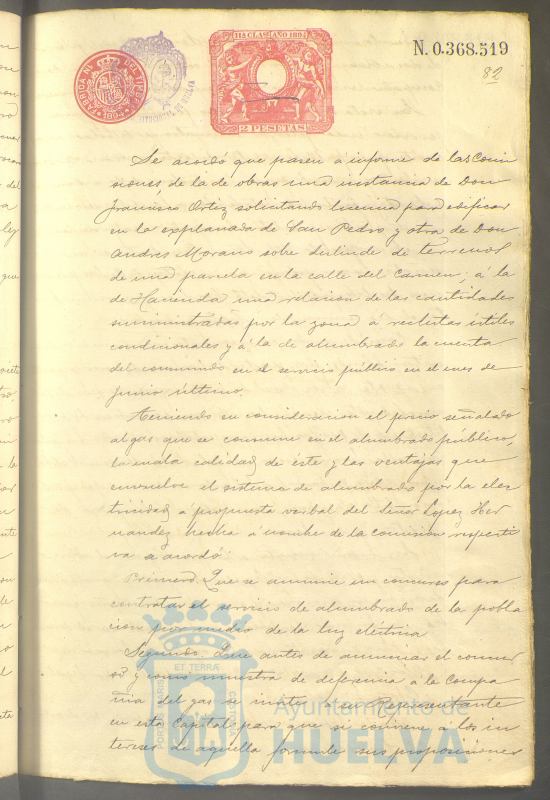 11ª CLASE AÑO 1894
N. 0.368.519
82
FABRICA N. DEL TIMBRE
1894
2 PESETAS
Se acordó que pasen á informe de las Comi
siones, de la de obras una instancia de Don
Francisco Ortiz solicitando licencia para edificar
en la explanada de San Pedro y otra de Don
Andres Morano sobre deslinde de terrenos
de una parcela en la calle del Carmen; á la
de Hacienda una relacion de las cantidades
suministradas por la zona á reclutas útiles
condicionales y á la de alumbrado la cuenta
del consumido en el servicio público en el mes de
Junio último.
Teniendo en consideracion el precio señalado
al gas que se consume en el alumbrado público,
la mala calidad de éste y las ventajas que
envuelve el sistema de alumbrado por la elec
tricidad, á propuesta verbal del Señor Lopez Her
nandez hecha á nombre de la comision respecti
va se acordó
Primero. Que se anuncie un concurso para
contratar el servicio de alumbrado de la pobla
cion por medio de la luz eléctrica
Segundo. Que antes de anunciar el concur
so y como muestra de deferencia á la Compa
ñia del gas se invite al Representante
en esta Capital para que si conviene á los in
tereses de aquella formule sus proposiciones
PORTUS MARIS ET TERRÆ CUSTODIA
Ayuntamiento de
HUELVA